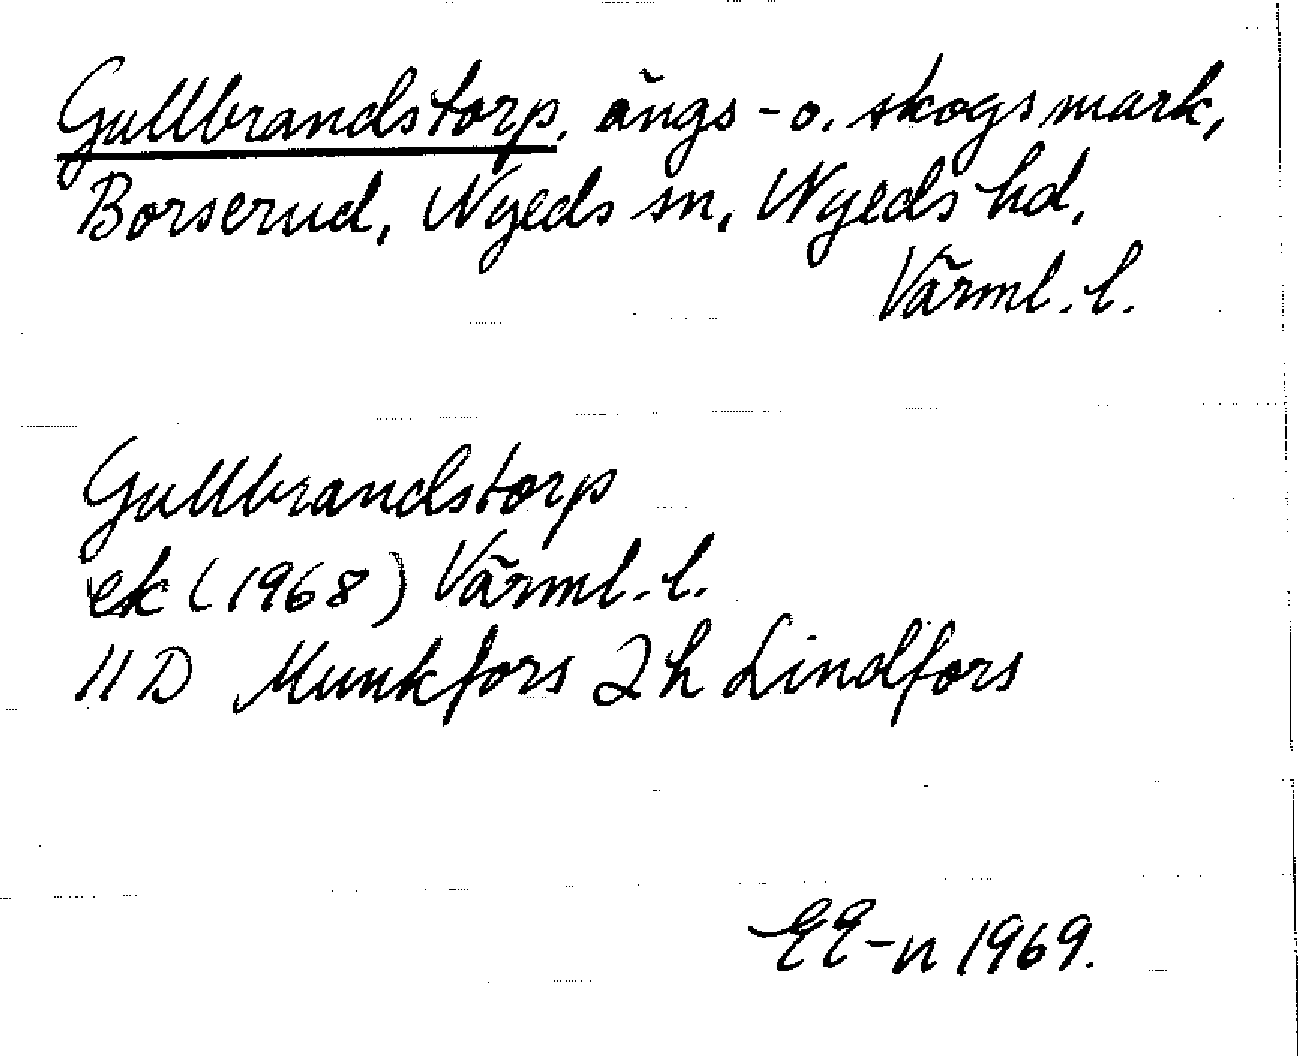 Gullbrandstorp, ängs- o. skogsmark,
Borserud, Nyeds sn, Nyeds hd,
Värml. l.
Gullbrandstorp
ek (1968) Värml. l.
11D Munkfors 2h Lindfors
EE-n 1969.